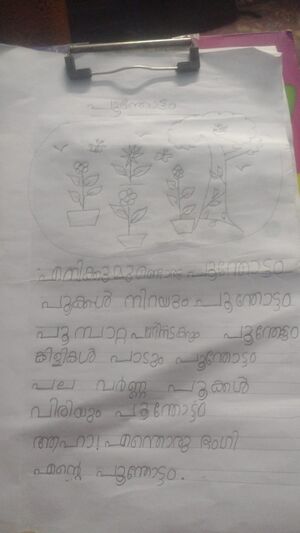 പൂന്തോട്ടം
എനിക്കുമുണ്ടൊരു പൂന്തോട്ടം
പൂക്കൾ നിറയും പൂന്തോട്ടം
പൂമ്പാറ്റ പൂന്തോട്ടം
കിളികൾ പാടും പൂന്തോട്ടം
പല വർണ്ണ പൂക്കൾ
വിരിയും പൂന്തോട്ടം
ആഹാ! എന്തൊരു ഭംഗി
എന്റെ പൂന്തോട്ടം.